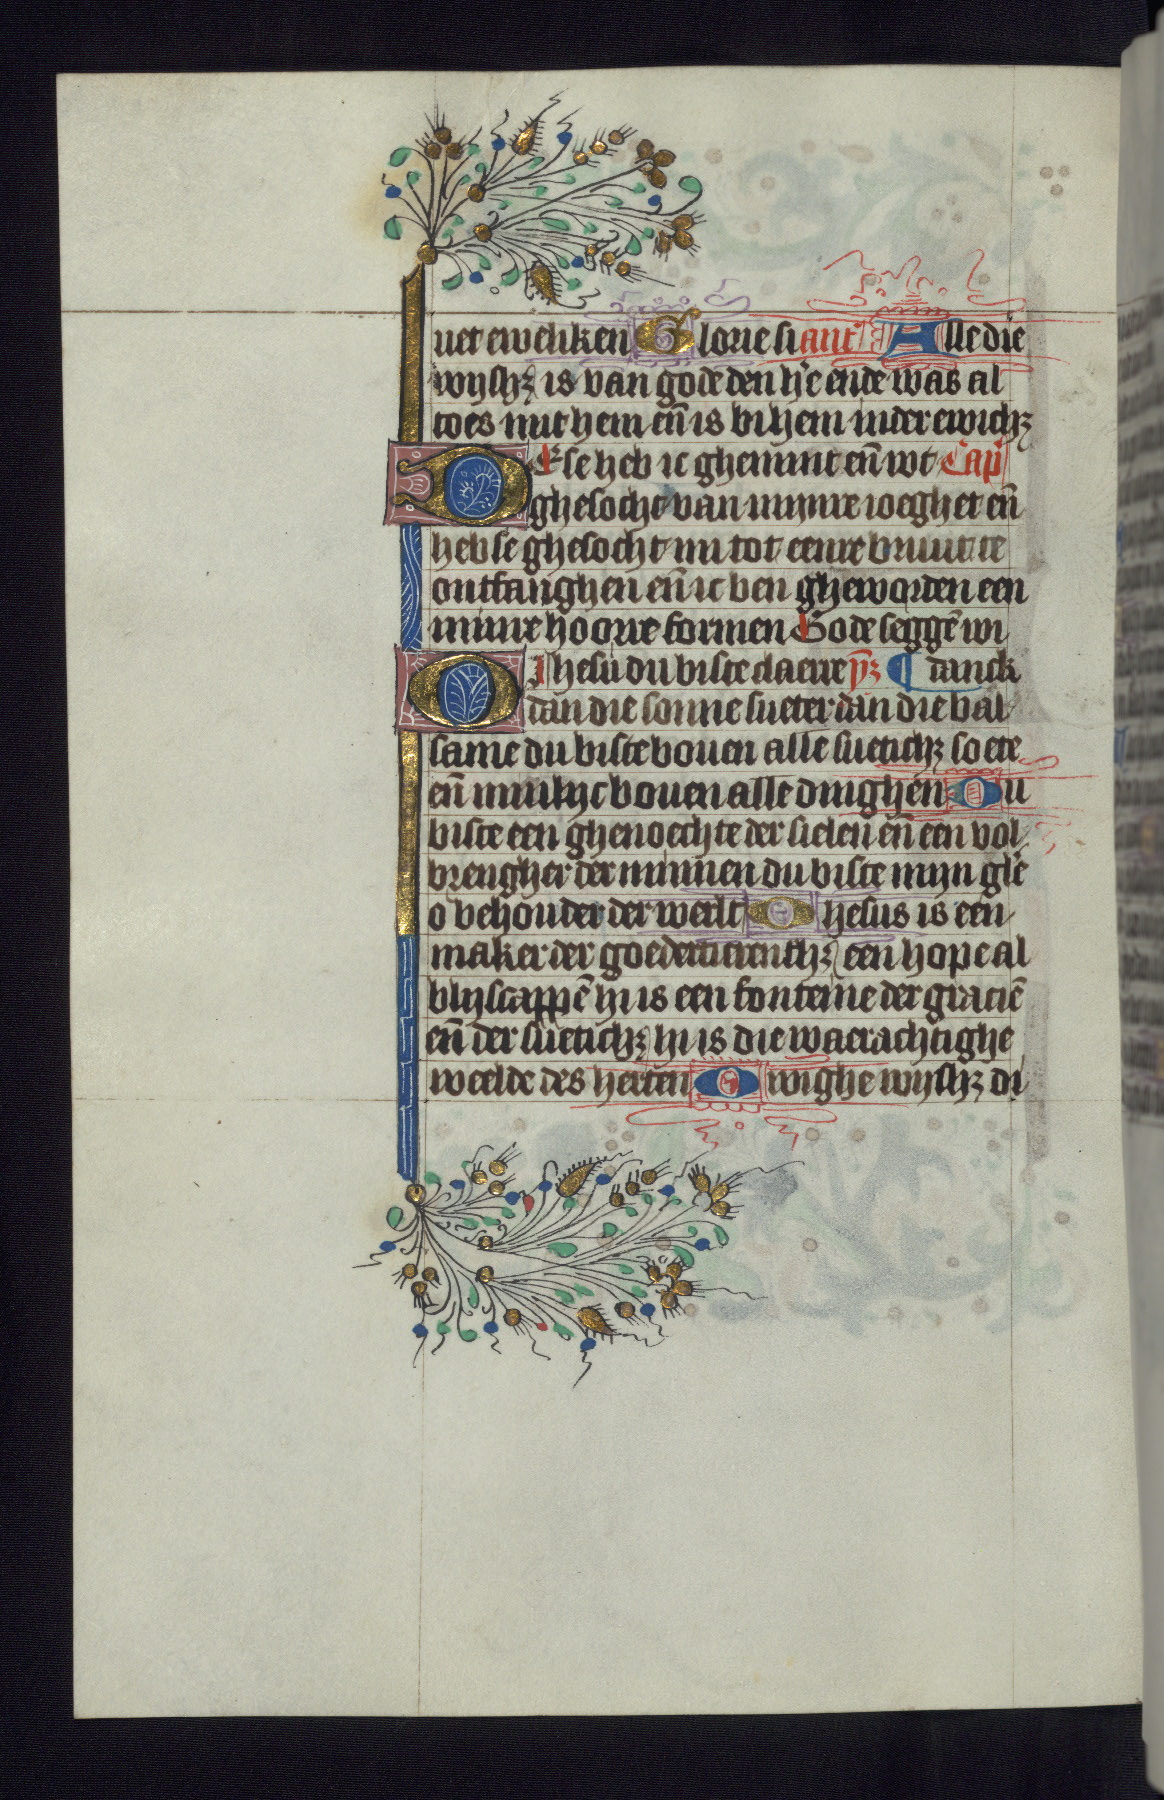 uet eweliken Glorie si ant̄ Alle die
wijsh̄ʒ is van gode den h̓e ende was al
toes mit hem eñ is bi hem in der ewich̄ʒ
DEse heb ic ghemint eñ wt Cap̄
ghesocht van mijnre ioeghet eñ
heb se ghesocht mi tot eenre bruut te
ontfanghen eñ ic ben gheworden een
minre hoorre formen Gode seggē wi
O Jhesu du biste claerre p̄ʒ ¶ danck
dan die sonne sueter dan die bal
same du biste bouen alle suetich̄ʒ soete
eñ minlijc bouen alle dinghen Du
biste een ghenoechte der sielen eñ een vol
brengher der minnen du biste mijn gl̓e
o behouder der werlt Jhesus is een
maker der goedertierenth̄ʒ een hope al
blijscappē hi is een fonteine der graciē
eñ der suetich̄ʒ hi is die waerachtighe
weelde des herten Ewighe wijsh̄ʒ di